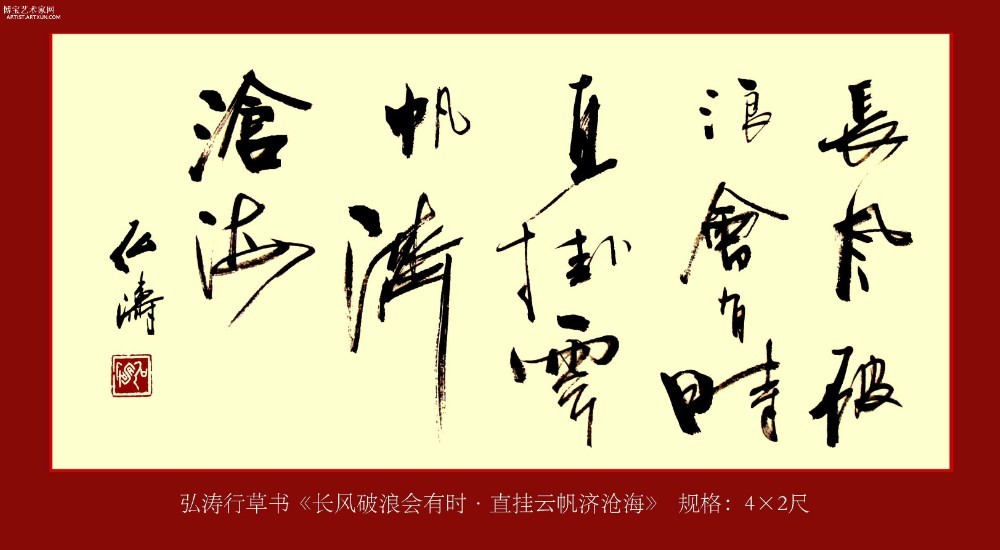 博宝艺术家网
ARTIST.ARTXUN.COM
長風破
浪會有時
直掛雲
帆濟
滄海
弘濤
弘涛行草书《长风破浪会有时·直挂云帆济沧海》 规格：4×2尺